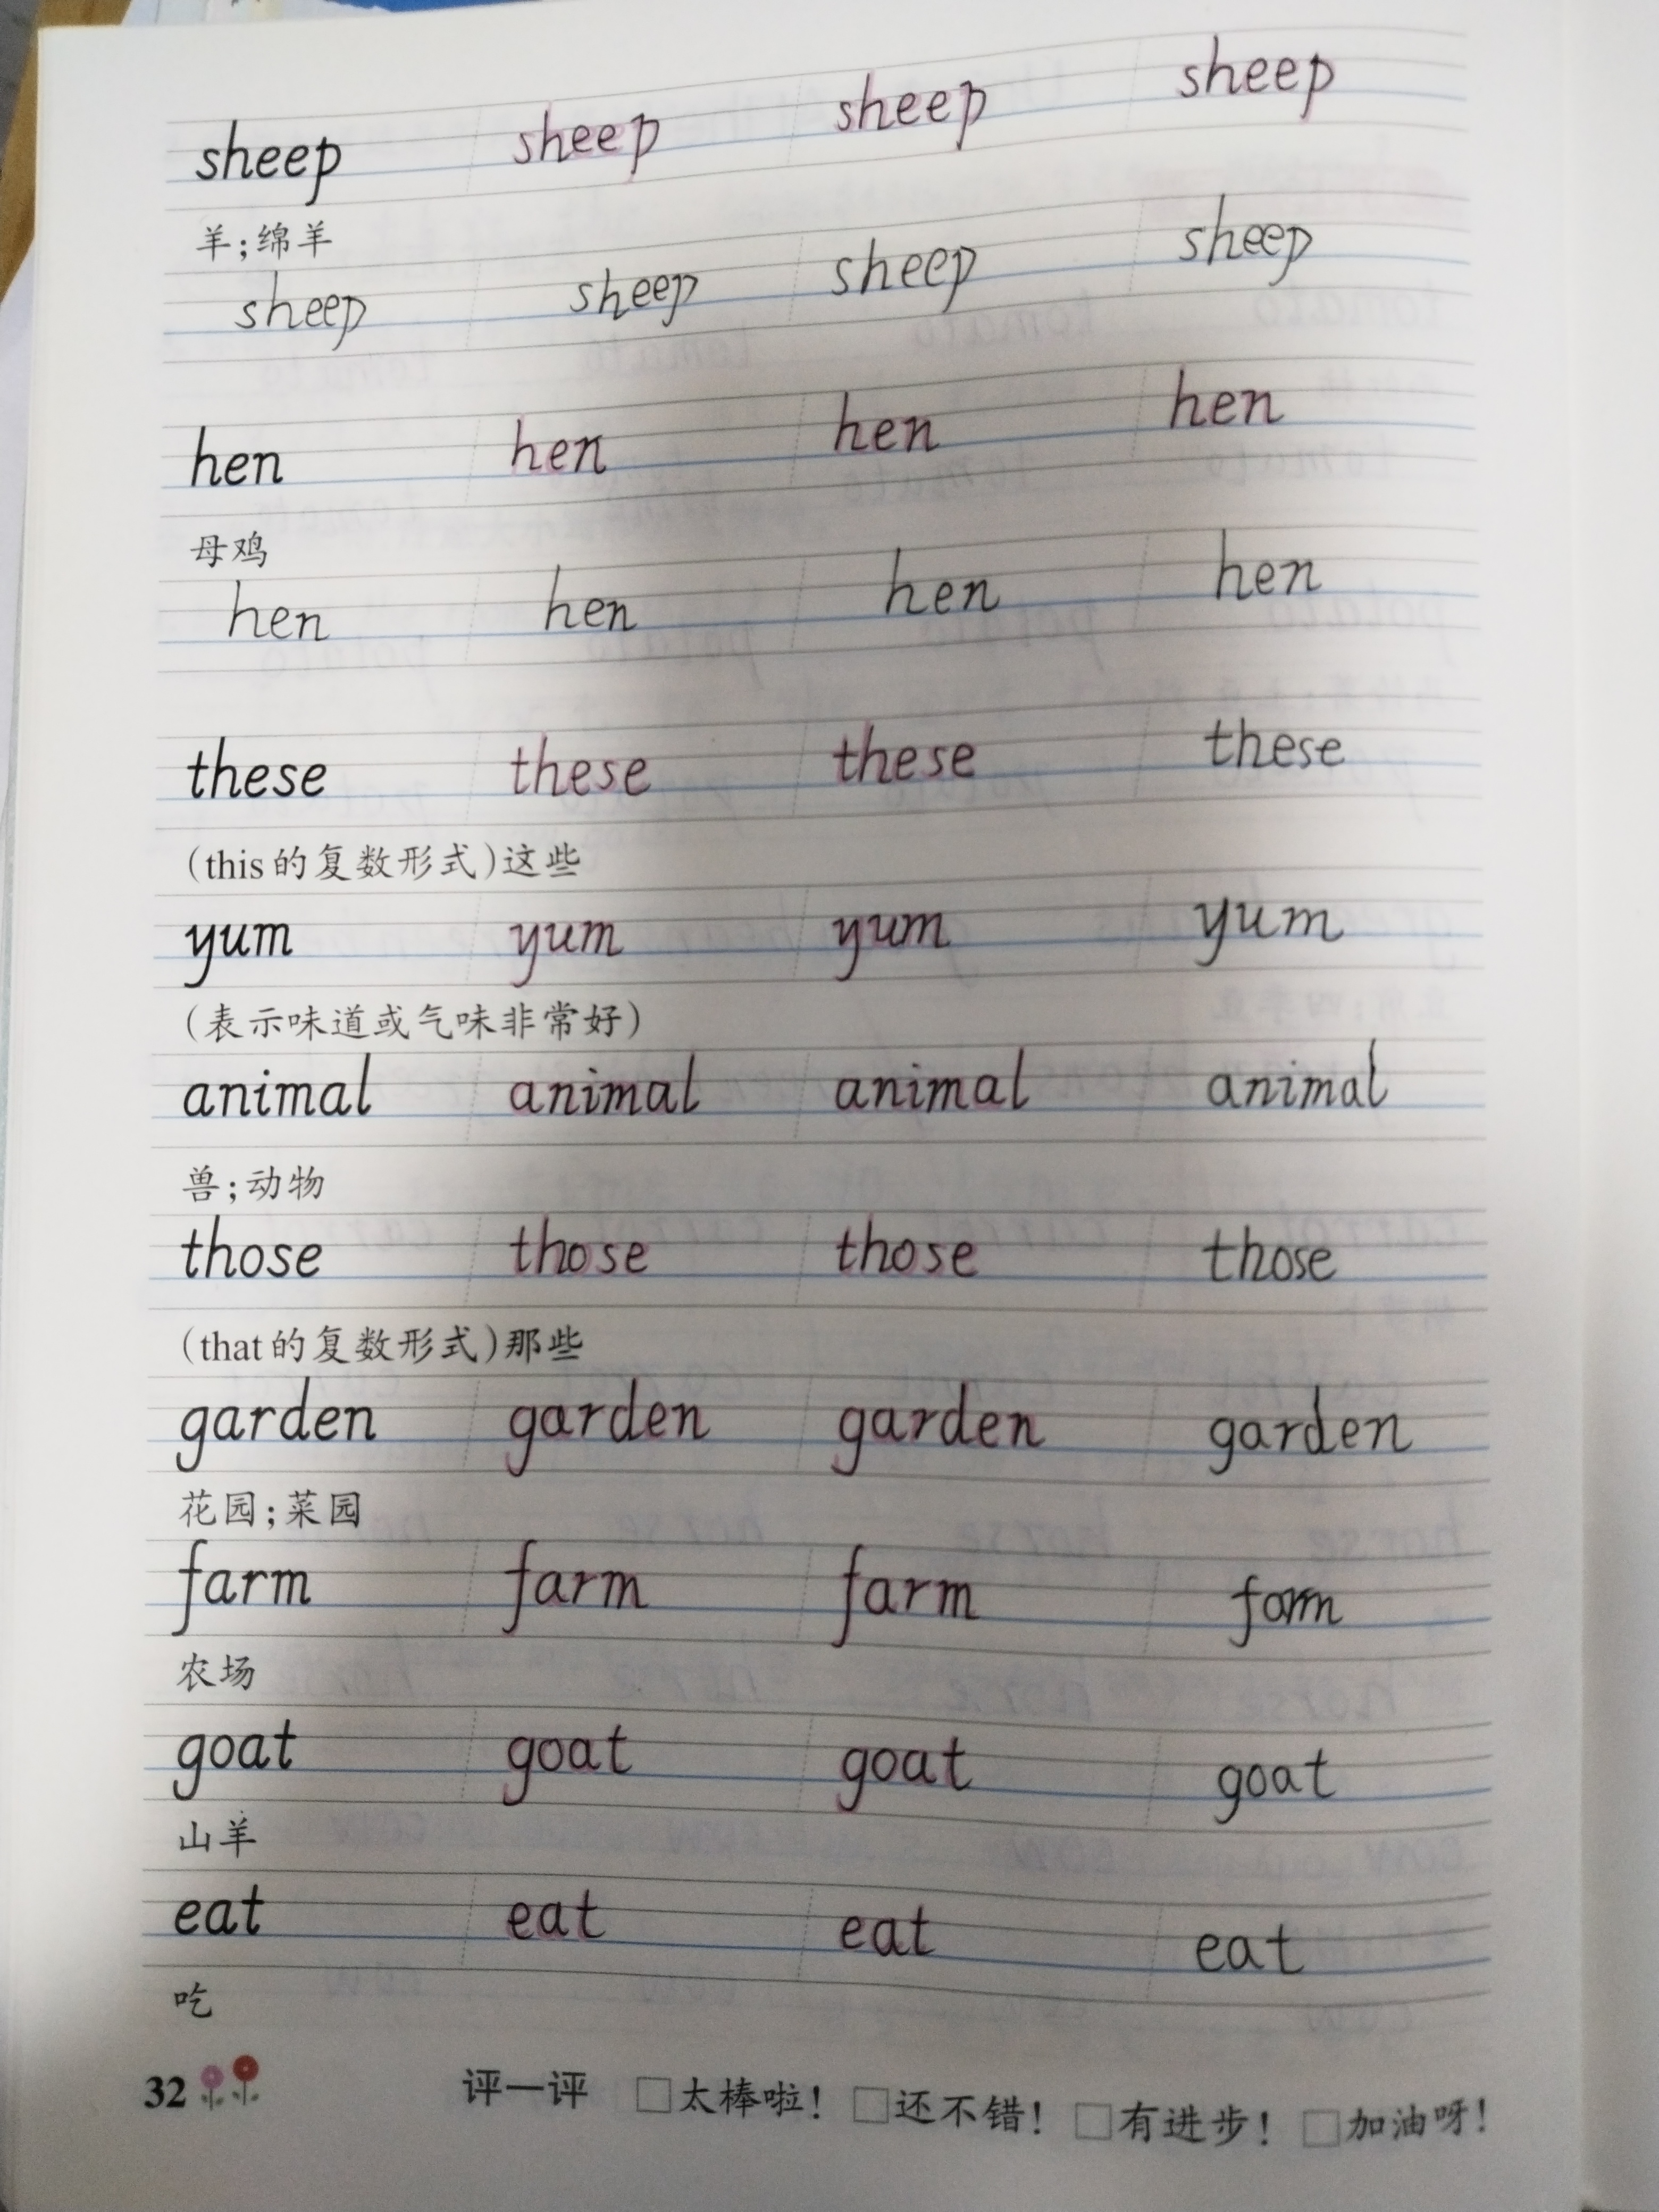 sheep sheep sheep sheep
羊;绵羊
sheep sheep sheep sheep
hen hen hen hen
母鸡
hen hen hen hen
these these these these
(this的复数形式)这些
yum yum yum yum
(表示味道或气味非常好)
animal animal animal animal
兽;动物
those those those those
(that的复数形式)那些
garden garden garden garden
花园;菜园
farm farm farm farm
农场
goat goat goat goat
山羊
eat eat eat eat
吃
32 评一评 □太棒啦! □还不错! □有进步! □加油呀!